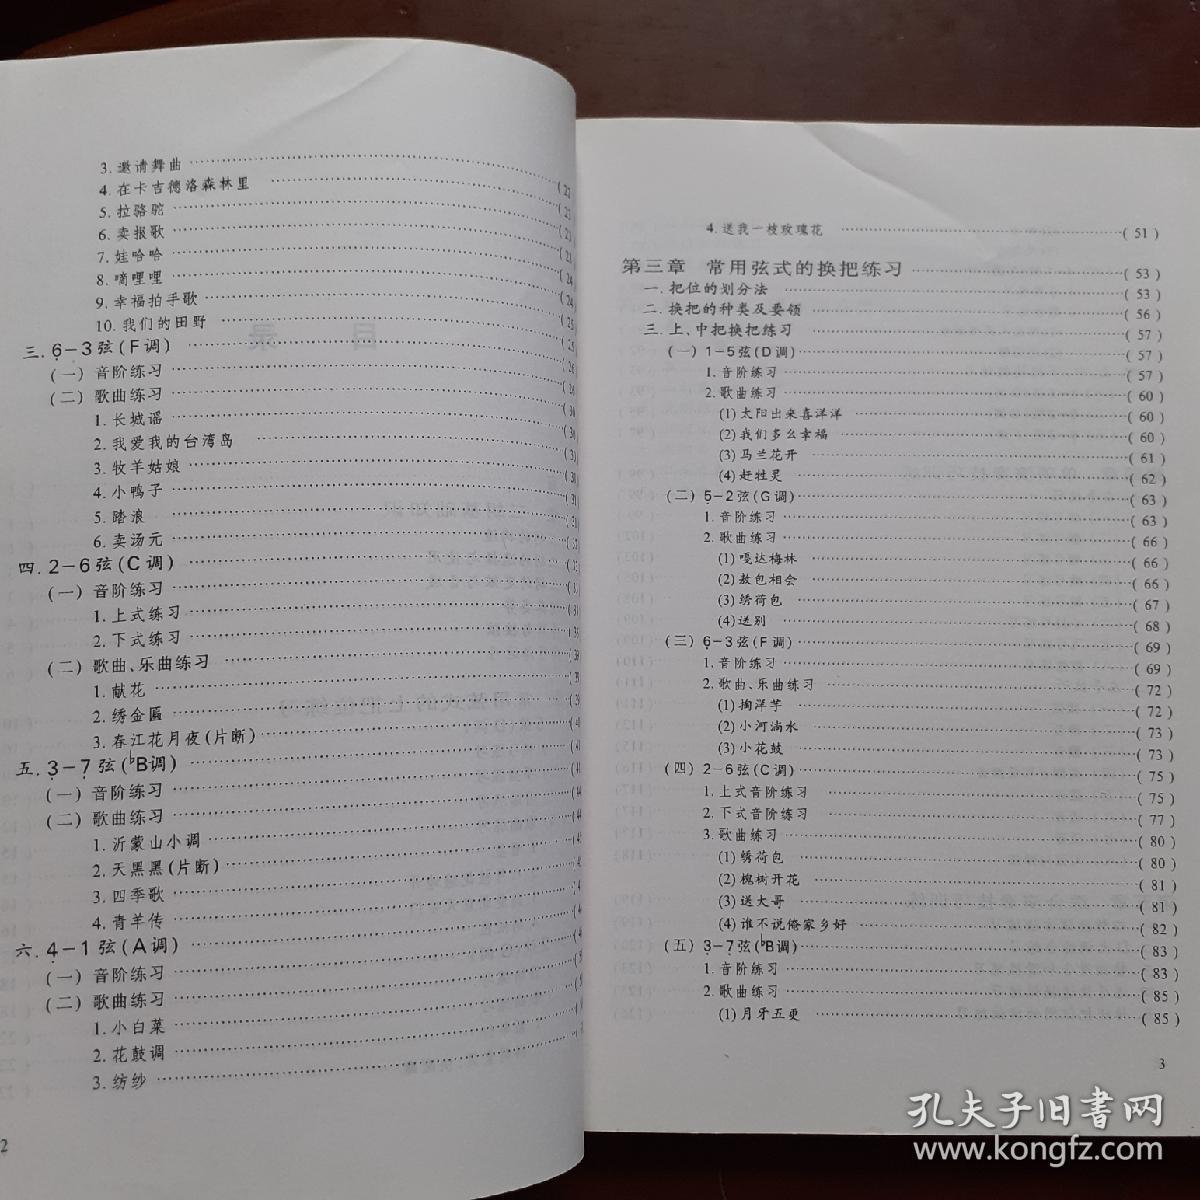 3. 邀请舞曲
4. 在卡吉德洛森林里 (22
5. 拉骆驼
6. 卖报歌
7. 娃哈哈
8. 嘀哩哩
9. 幸福拍手歌
10. 我们的田野
三. 6-3弦(F调)
(一) 音阶练习
(二) 歌曲练习
1. 长城谣
2. 我爱我的台湾岛
3. 牧羊姑娘
4. 小鸭子
5. 踏浪
6. 卖汤元
四. 2-6弦(C调)
(一) 音阶练习
1. 上式练习
2. 下式练习
(二) 歌曲、乐曲练习
1. 献花
2. 绣金匾
3. 春江花月夜(片断)
五. 3-7弦(♭B调)
(一) 音阶练习
(二) 歌曲练习
1. 沂蒙山小调
2. 天黑黑(片断)
3. 四季歌
4. 青羊传
六. 4-1弦(A调)
(一) 音阶练习
(二) 歌曲练习
1. 小白菜
2. 花鼓调
3. 纺纱
2
4. 送我一枝玫瑰花 (51)
第三章 常用弦式的换把练习 (53)
一. 把位的划分法 (53)
二. 换把的种类及要领 (56)
三. 上、中把换把练习 (57)
(一) 1-5弦(D调) (57)
1. 音阶练习 (57)
2. 歌曲练习 (60)
(1) 太阳出来喜洋洋 (60)
(2) 我们多么幸福 (60)
(3) 马兰花开 (61)
(4) 赶牲灵 (62)
(二) 5-2弦(G调) (63)
1. 音阶练习 (63)
2. 歌曲练习 (66)
(1) 嘎达梅林 (66)
(2) 敖包相会 (66)
(3) 绣荷包 (67)
(4) 送别 (68)
(三) 6-3弦(F调) (69)
1. 音阶练习 (69)
2. 歌曲、乐曲练习 (72)
(1) 掏洋芋 (72)
(2) 小河淌水 (73)
(3) 小花鼓 (73)
(四) 2-6弦(C调) (75)
1. 上式音阶练习 (75)
2. 下式音阶练习 (77)
3. 歌曲练习 (80)
(1) 绣荷包 (80)
(2) 槐树开花 (81)
(3) 送大哥 (81)
(4) 谁不说俺家乡好 (82)
(五) 3-7弦(♭B调) (83)
1. 音阶练习 (83)
2. 歌曲练习 (85)
(1) 月牙五更 (85)
3
孔夫子旧书网
www.kongfz.com